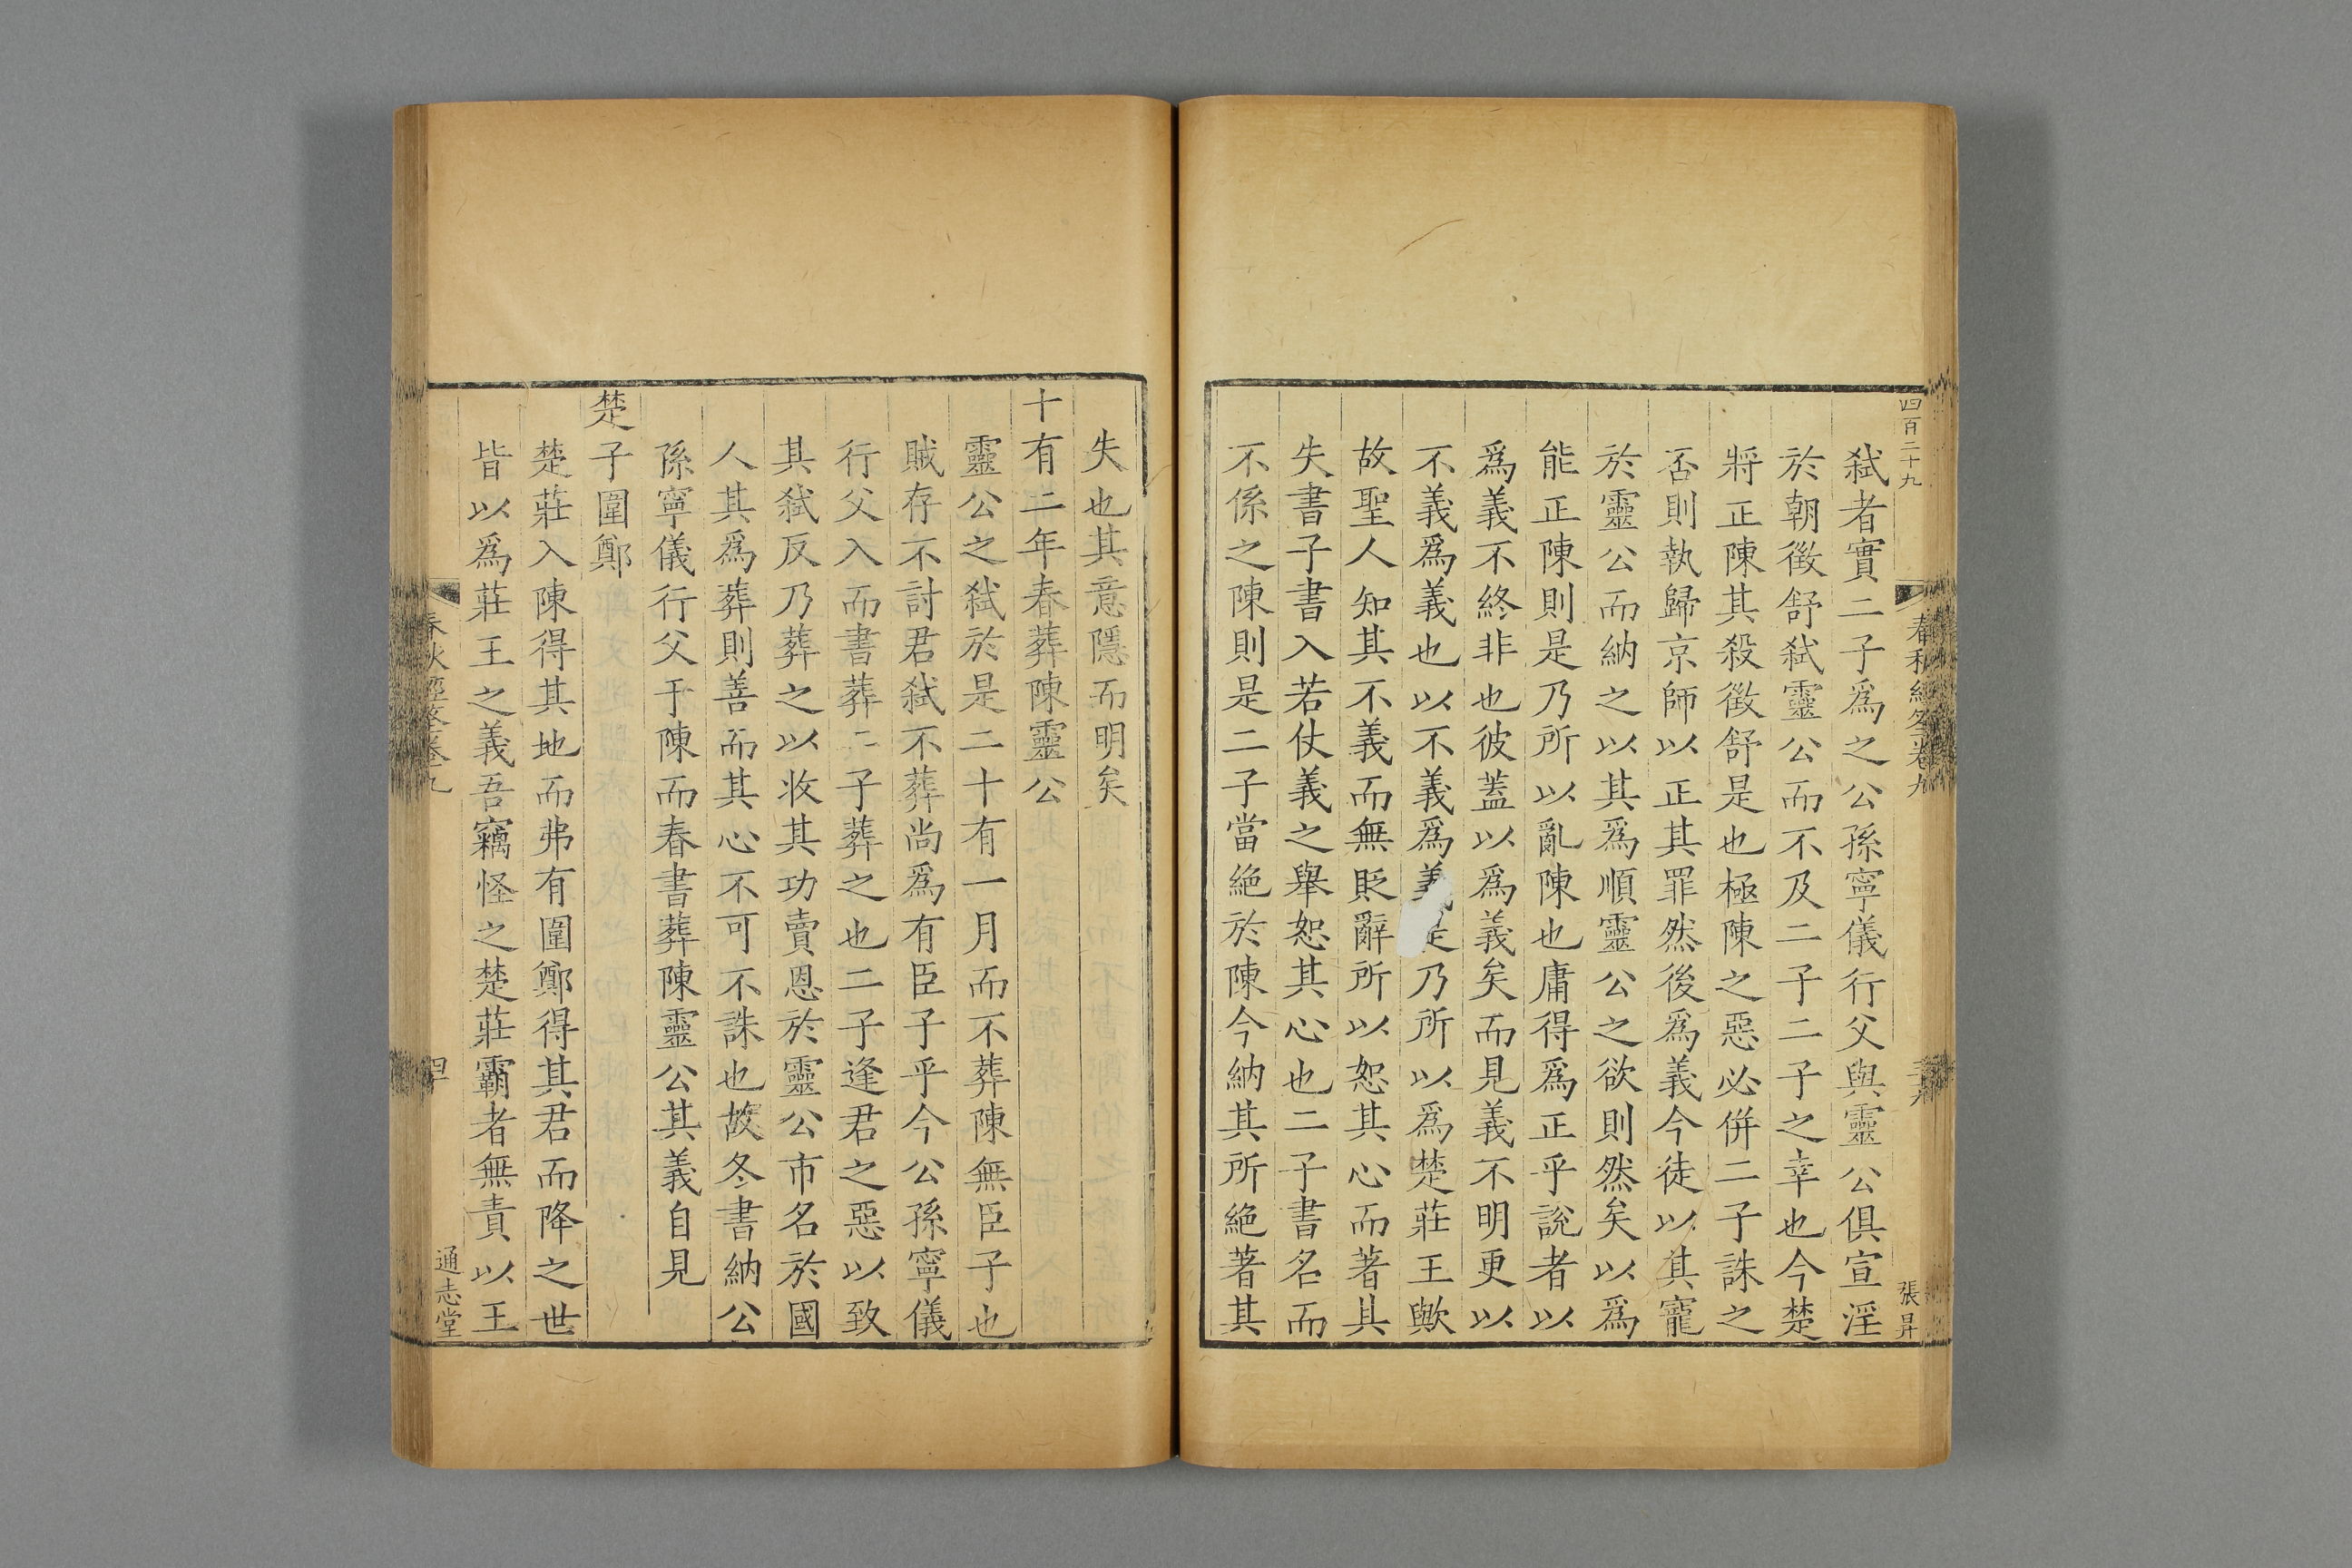 四百二十九
春秋經筌卷九
張昇
弑者實二子爲之公孫寧儀行父與靈公俱宣淫
於朝徵舒弑靈公而不及二子二子之幸也今楚
將正陳其殺徵舒是也極陳之惡必併二子誅之
否則執歸京師以正其罪然後爲義今徒以其寵
於靈公而納之以其爲順靈公之欲則然矣以爲
能正陳則是乃所以亂陳也庸得爲正乎說者以
爲義不終非也彼蓋以爲義矣而見義不明更以
不義爲義也以不義爲義是乃所以爲楚莊王歟
故聖人知其不義而無貶辭所以恕其心而著其
失書子書入若仗義之舉恕其心也二子書名而
不係之陳則是二子當絶於陳今納其所絶著其
失也其意隱而明矣
十有二年春葬陳靈公
靈公之弑於是二十有一月而不葬陳無臣子也
賊存不討君弑不葬尚爲有臣子乎今公孫寧儀
行父入而書葬二子葬之也二子逢君之惡以致
其弑反乃葬之以收其功賣恩於靈公市名於國
人其爲葬則善而其心不可不誅也故冬書納公
孫寧儀行父于陳而春書葬陳靈公其義自見
楚子圍鄭
楚莊入陳得其地而弗有圍鄭得其君而降之世
皆以爲莊王之義吾竊怪之楚莊霸者無責以王
春秋經筌卷九
四十
通志堂